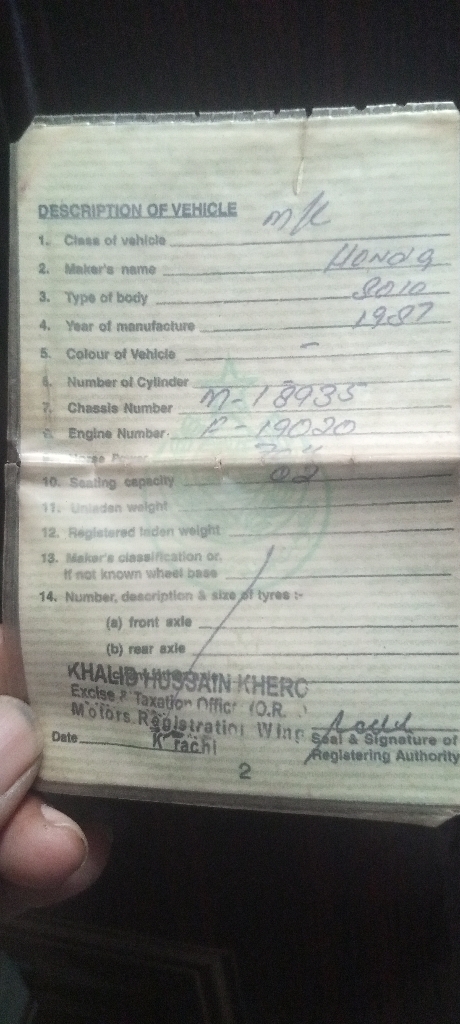 DESCRIPTION OF VEHICLE
1. Class of vehicle
2. Maker's name HONDA
3. Type of body SOLO
4. Year of manufacture 1987
5. Colour of Vehicle -
6. Number of Cylinder
7. Chassis Number M-18935
8. Engine Number. E-19020
9. Horse Power
10. Seating capacity 02
11. Unladen weight
12. Registered laden weight
13. Maker's classification or.
if not known wheel base
14. Number, description & size of tyres :-
(a) front axle
(b) rear axle
KHALID HUSSAIN KHERO
Excise & Taxation Officer (O.R. )
Motors Registration Wing
Karachi
Date
Seal & Signature of
Registering Authority
2